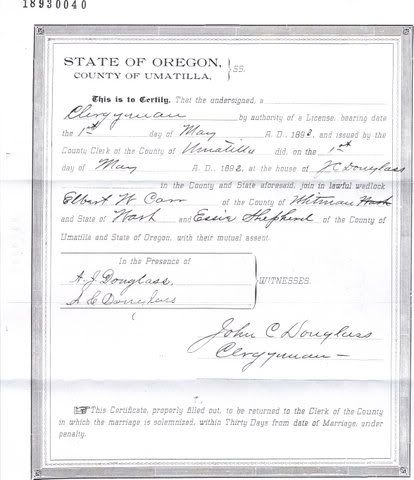 18930040
STATE OF OREGON,
COUNTY OF UMATILLA,
} SS.
This is to Certify, That the undersigned, a
Clergyman by authority of a License, bearing date
the 1st day of May A. D., 1893, and issued by the
County Clerk of the County of Umatilla did, on the 1st
day of May A. D., 1893, at the house of J C Douglass
in the County and State aforesaid, join in lawful wedlock
Elbert W Carr of the County of Whitman Wash
and State of Wash and Essie Shepherd of the County of
Umatilla and State of Oregon, with their mutual assent.
In the Presence of
A. J. Douglass,
Douglass
WITNESSES.
John C Douglass
Clergyman —
☞This Certificate, properly filled out, to be returned to the Clerk of the County
in which the marriage is solemnized, within Thirty Days from date of Marriage, under
penalty.